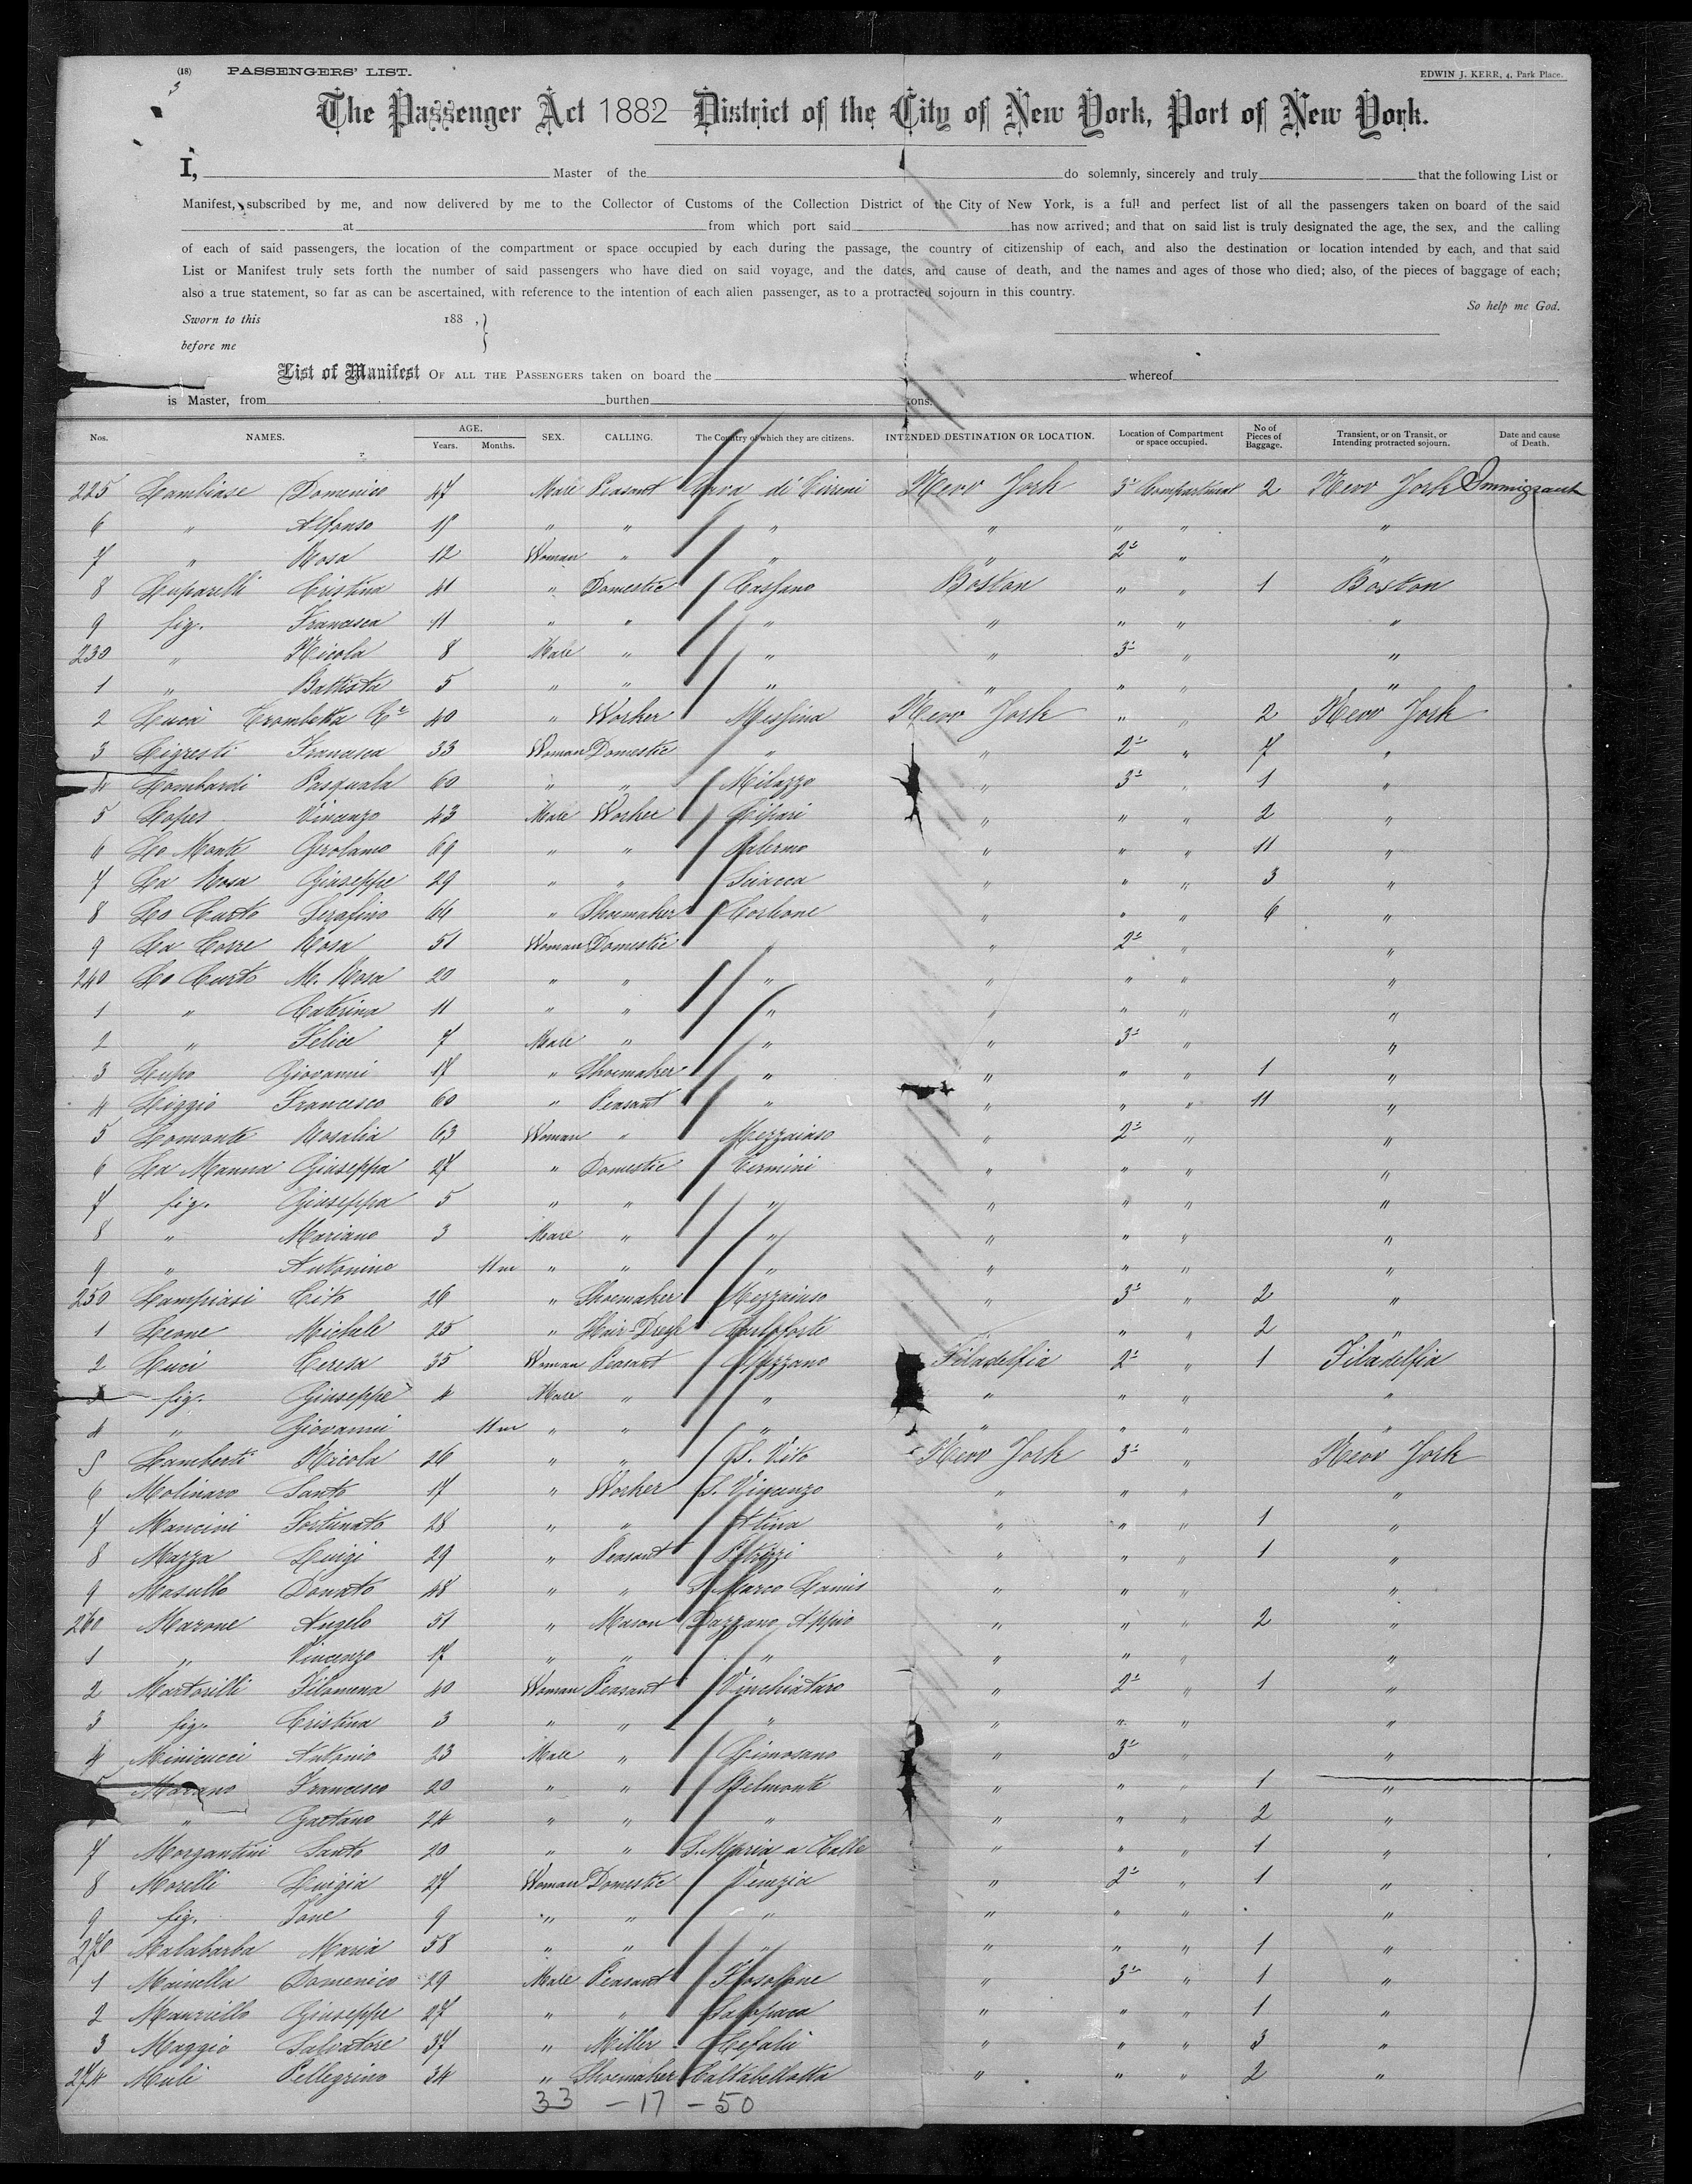 (18) PASSENGERS' LIST. EDWIN J. KERR, 4, Park Place.
3
The Passenger Act 1882 District of the City of New York, Port of New York.
I, Master of the do solemnly, sincerely and truly that the following List or
Manifest, subscribed by me, and now delivered by me to the Collector of Customs of the Collection District of the City of New York, is a full and perfect list of all the passengers taken on board of the said
at from which port said has now arrived; and that on said list is truly designated the age, the sex, and the calling
of each of said passengers, the location of the compartment or space occupied by each during the passage, the country of citizenship of each, and also the destination or location intended by each, and that said
List or Manifest truly sets forth the number of said passengers who have died on said voyage, and the dates, and cause of death, and the names and ages of those who died; also, of the pieces of baggage of each;
also a true statement, so far as can be ascertained, with reference to the intention of each alien passenger, as to a protracted sojourn in this country.
So help me God.
Sworn to this 188 ,}
before me
List of Manifest OF ALL THE PASSENGERS taken on board the whereof
is Master, from burthen tons.
Nos. NAMES. AGE. Years. Months. SEX. CALLING. The Country of which they are citizens. INTENDED DESTINATION OR LOCATION. Location of Compartment or space occupied. No of Pieces of Baggage. Transient, or on Transit, or Intending protracted sojourn. Date and cause of Death.
225 Lambiase Domenico 47 Male Peasant Cava di Tirreni New York 3ª Compartment 2 New York Immigrant
6 " Alfonso " " " " " " "
7 " Rosa 12 Woman " " " 2ª " "
8 Luparelli Cristina 41 " Domestic Cassano Boston " " 1 Boston
9 fig. Francesca 11 " " " " " " "
230 " Nicola 8 Male " " " 3ª " "
1 " Battista 5 " " " " " " "
2 Lucà Trombetta 40 " Worker Messina New York " " 2 New York
3 Ligresti Francesca 33 Woman Domestic " " 2ª " 7 "
4 Lombardi Pasquala 60 " " Milazzo " 3ª " 1 "
5 Lopes Vincenzo 43 Male Worker Lipari " " " 2 "
6 Lo Monte Girolamo 69 " " Palermo " " " 11 "
7 La Rosa Giuseppe 29 " " Sciacca " " " 3 "
8 Lo Curto Serafino 66 " Shoemaker Corleone " " " 6 "
9 La Torre Rosa 51 Woman Domestic " " 2ª " "
240 Lo Curto M. Rosa 20 " " " " " " "
1 " Caterina 11 " " " " " " "
2 " Felice 7 Male " " " 3ª " "
3 Lupo Giovanni 17 " Shoemaker " " " " 1 "
4 Liggio Francesco 60 " Peasant " " " " 11 "
5 Lomonte Rosalia 63 Woman " Mezzaiuso " 2ª " "
6 La Manna Giuseppa 27 " Domestic Termini " " " "
7 fig. Giuseppa 5 " " " " " " "
8 " Mariano 3 Male " " " " " "
9 " Antonino 11 m " " " " " " "
250 Lampiasi Tito 26 " Shoemaker Mezzaiuso " 3ª " 2 "
1 Leone Michele 25 " Carloforte " " " 2 "
2 Luci Teresa 35 Woman Peasant Filadelfia 2ª " 1 Filadelfia
3 fig. Giuseppe 4 Male " " " " " "
4 " Giovanni 11 m " " " " " " "
5 Lamberti Nicola 26 " " S. Vito New York 3ª " New York
6 Molinaro Santo 17 " Worker S. Vincenzo " " " "
7 Mancini Fortunato 28 " " Atina " " " 1 "
8 Mazza Luigi 29 " Peasant " " " 1 "
9 Masullo Donato 48 " " S. Marco Lamis " " " "
260 Marone Angelo 51 " Mason Appio " " " 2 "
1 " Vincenzo 17 " " " " " " "
2 Martorilli Filomena 40 Woman Peasant Vinchiataro " 2ª " 1 "
3 fig. Cristina 3 " " " " " " "
4 Minicucci Antonio 23 Male " Limosano " 3ª " "
5 Marano Francesco 20 " " Belmonte " " " 1 "
" Gaetano 24 " " " " " " 2 "
7 Morgantini Santo 20 " " S. Maria a Colle " " " 1 "
8 Morelli Luigia 27 Woman Domestic Venezia " 2ª " 1 "
9 fig. Jane 9 " " " " " " "
270 Malabarba Maria 58 " " " " " " 1 "
1 Mainella Domenico 29 Male Peasant Frosolone " 3ª " 1 "
2 Mauriello Giuseppe 27 " " " " " 1 "
3 Maggio Salvatore 37 " Miller Cefalù " " " 3 "
274 Mulè Pellegrino 34 " Shoemaker Caltabellotta " " " 2 "
33 - 17 - 50